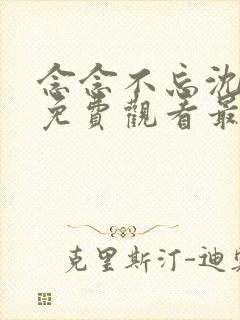 念念不忘沈
免費觀看最
克里斯汀-迪